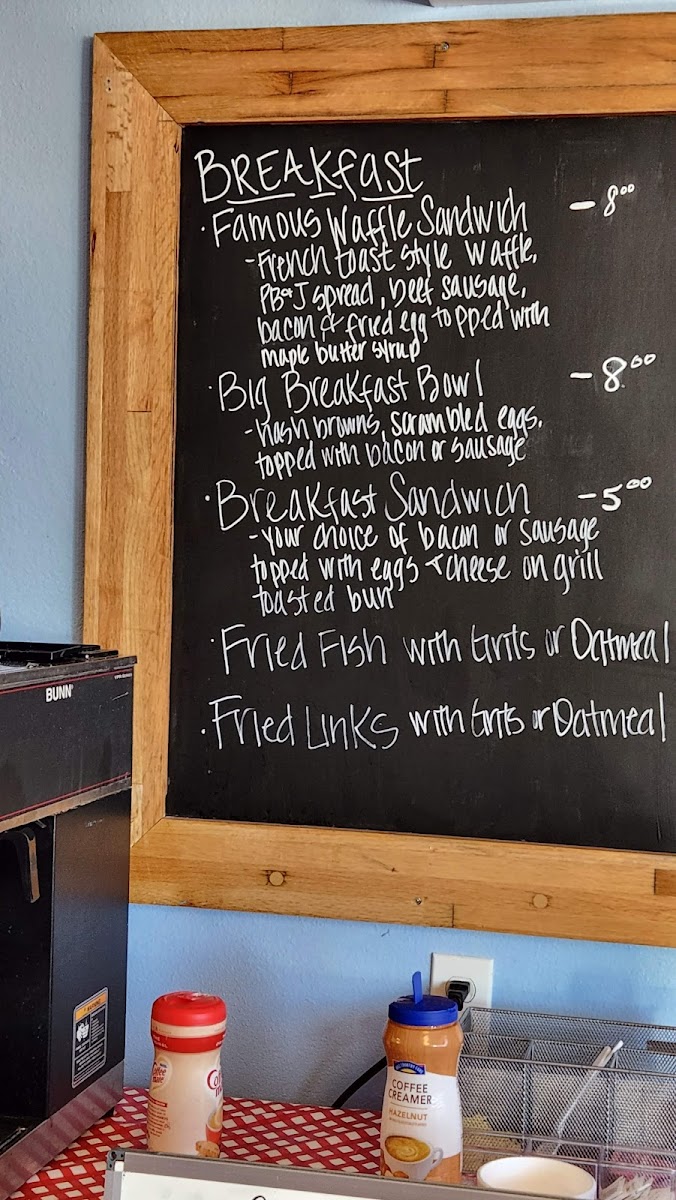 BREAKfAST
· Famous Waffle Sandwich - 8⁰⁰
- French toast style waffle,
PB&J spread, beef sausage,
bacon & fried egg topped with
maple butter syrup
· Big Breakfast Bowl - 8.⁰⁰
- hash browns, scrambled eggs,
topped with bacon or sausage
· Breakfast Sandwich - 5⁰⁰
- your choice of bacon or sausage
topped with eggs & cheese on grill
toasted bun
· Fried Fish with Grits or Oatmeal
· Fried Links with Grits or Oatmeal
BUNN
COFFEE
CREAMER
HAZELNUT